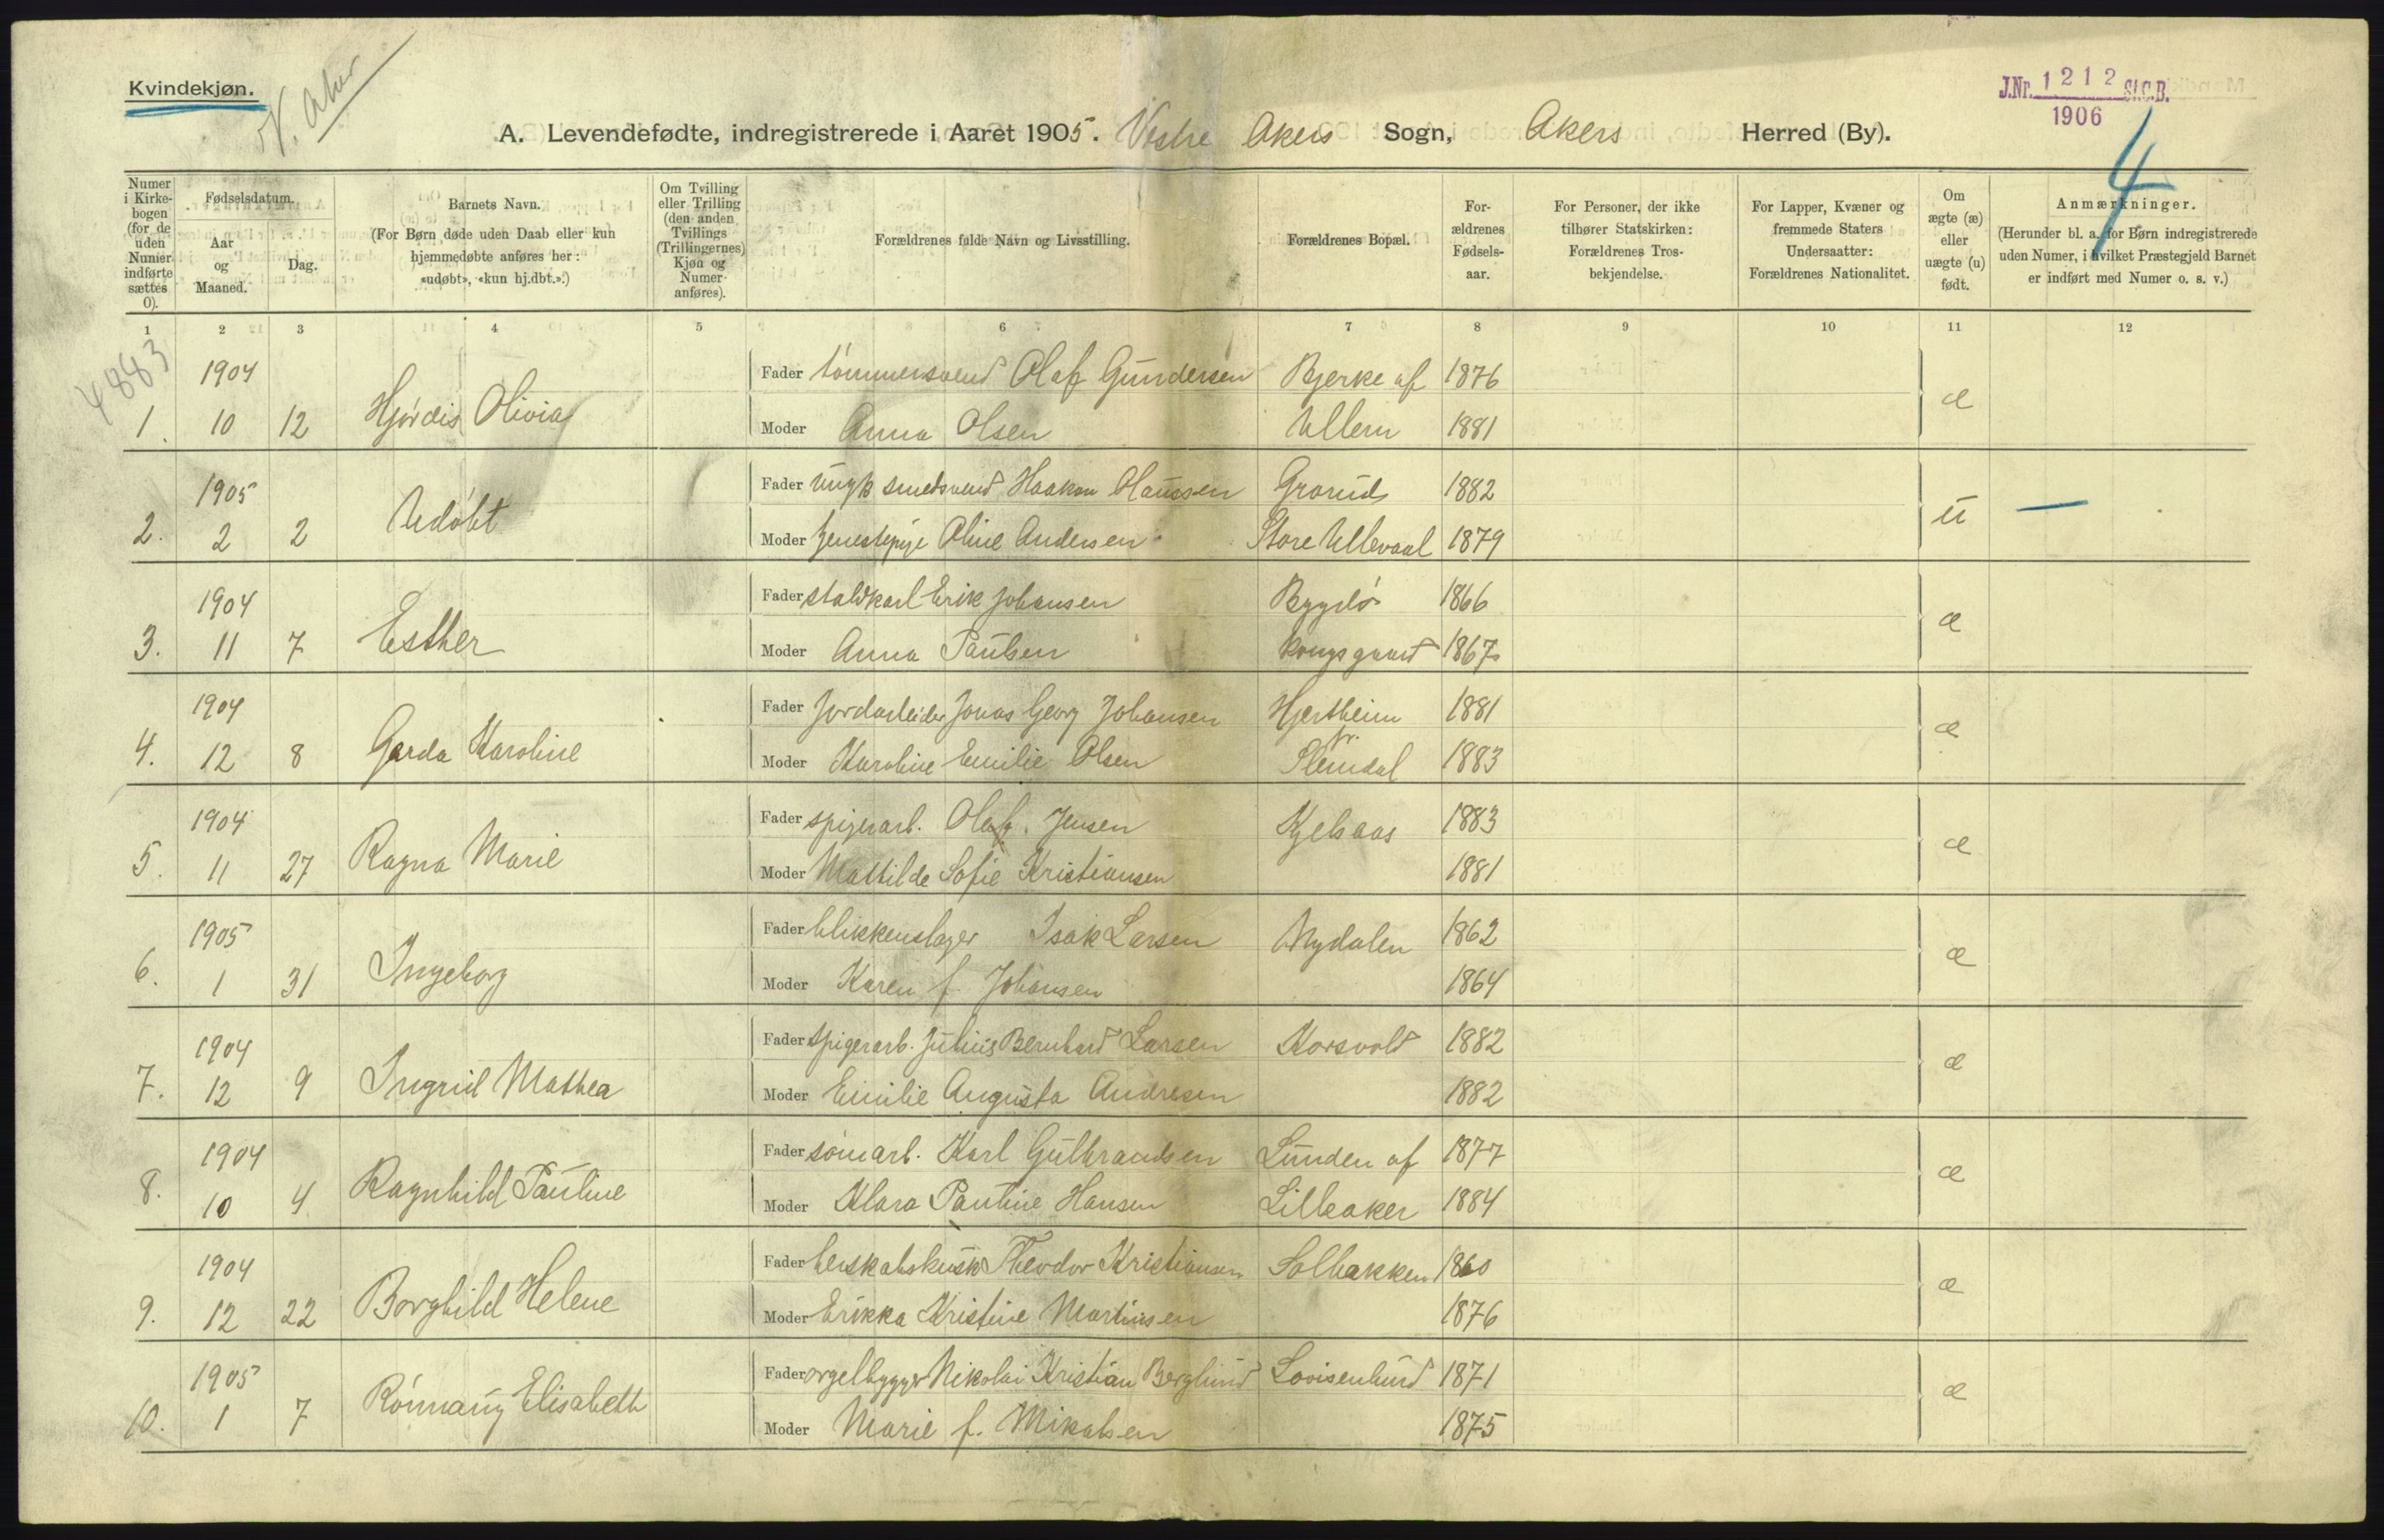 Kvindekjøn.
V. Aker
J.Nr. 1212 St.C.B.
1906
4
A. Levendefødte, indregistrerede i Aaret 1905. Vestre Akers Sogn, Akers Herred (By).
Numer i Kirkebogen (for de uden Numer indførte sættes 0).
Fødselsdatum.
Aar og Maaned.
Dag.
Barnets Navn.
(For Børn døde uden Daab eller kun hjemmedøbte anføres her: «udøbt», «kun hj.dbt.».)
Om Tvilling eller Trilling (den anden Tvillings (Trillingernes) Kjøn og Numer anføres).
Forældrenes fulde Navn og Livsstilling.
Forældrenes Bopæl.
Forældrenes Fødselsaar.
For Personer, der ikke tilhører Statskirken: Forældrenes Trosbekjendelse.
For Lapper, Kvæner og fremmede Staters Undersaatter: Forældrenes Nationalitet.
Om ægte (æ) eller uægte (u) født.
Anmærkninger.
(Herunder bl. a. for Børn indregistrerede uden Numer, i hvilket Præstegjeld Barnet er indført med Numer o. s. v.)
1 2 3 4 5 6 7 8 9 10 11 12
4883
1904 Fader tømmersvend Olaf Gundersen Bjerke af 1876
1. 10 12 Hjørdis Olivia Moder Anna Olsen Ullern 1881 æ
1905 Fader ungk smedsvend Haakon Olaussen Grorud 1882
2. 2 2 Udøbt Moder tjenestepige Oline Andersen Store Ullevaal 1879 u —
1904 Fader staldkarl Erik Johansen Bygdø 1866
3. 11 7 Esther Moder Anna Paulsen kongsgaard 1867 æ
1904 Fader Jordarbeider Jonas Georg Johansen Hjertheim 1881
4. 12 8 Gerda Karoline Moder Karoline Emilie Olsen pr. Slemdal 1883 æ
1904 Fader spigerarb. Olaf Jensen Kjelsaas 1883
5. 11 27 Ragna Marie Moder Mathilde Sofie Kristiansen 1881 æ
1905 Fader blikkenslager Isak Larsen Nydalen 1862
6. 1 31 Ingeborg Moder Karen f. Johansen 1864 æ
1904 Fader spigerarb. Julius Bernhard Larsen Korsvold 1882
7. 12 9 Ingrid Mathea Moder Emilie Augusta Andresen 1882 æ
1904 Fader sømarb. Karl Gulbrandsen Lunden af 1877
8. 10 4 Ragnhild Pauline Moder Klara Pauline Hansen Lilleaker 1884 æ
1904 Fader herskabskusk Theodor Kristiansen Solbakken 1860
9. 12 22 Borghild Helene Moder Erikka Kristine Martinsen 1876 æ
1905 Fader orgelbygger Nikolai Kristian Berglund Lovisenlund 1871
10. 1 7 Rønnaug Elisabeth Moder Marie f. Mikalsen 1875 æ